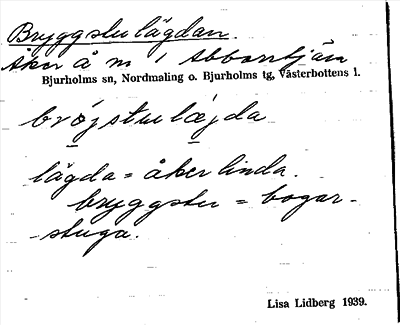 Bryggstulägdan.
Åker å nr 1 Abborrtjäln
Bjurholms sn, Nordmaling o. Bjurholms tg, Västerbottens l.
brøjstulæjda
lägda = åkerlinda.
bryggstu = bagar-
stuga.
Lisa Lidberg 1939.